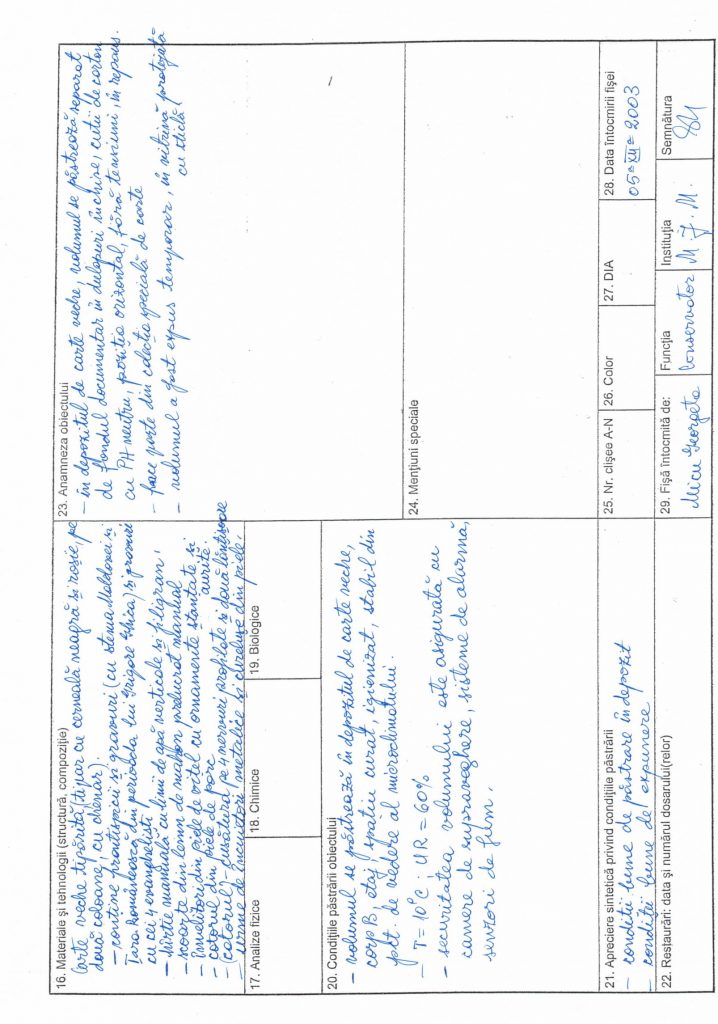 16. Materiale și tehnologii (structură, compoziție)
Carte veche tipărită (tipar cu cerneală neagră și roșie, pe
două coloane, cu chenar).
- conține frontispicii și gravuri (cu stema Moldovei și
Țara Românească din perioada lui Grigore Ghica) și gravuri
cu cei 4 evangheliști
- hîrtie manuală cu linii de apă verticale și filigran,
- scoarțe din lemn de mahon prelucrat manual
- învelitori din piele de vițel cu ornamente ștanțate și
aurite.
- cotorul din piele de porc
- (cotorul) - (cusătura) pe 4 nervuri profilate și două
- urme de încuietori metalice și curelușe din piele.
17. Analize fizice
18. Chimice
19. Biologice
20. Condițiile păstrării obiectului
- volumul se păstrează în depozitul de carte veche,
corp B, etaj, spațiu curat, igienizat, stabil din
pct. de vedere al microclimatului.
- T = 10°C. UR = 60%
- securitatea volumului este asigurată cu
camere de supraveghere, sisteme de alarmă,
senzori de fum.
21. Apreciere sintetică privind condițiile păstrării
- condiții bune de păstrare în depozit
- condiții bune de expunere
22. Restaurări: data și numărul dosarului(relor)
23. Anamneza obiectului
- în depozitul de carte veche, volumul se păstrează separat
de fondul documentar în dulapuri închise, cutii de carton
cu PH neutru, poziție orizontal, fără tensiuni, în repaus.
- face parte din colecția specială de carte
- volumul a fost expus temporar, în vitrină protejată
cu sticlă
24. Mențiuni speciale
25. Nr. clișee A-N
26. Color
27. DIA
28. Data întocmirii fișei
05 = XII = 2003
29. Fișă întocmită de:
Micu Georgeta
Funcția
Conservator
Instituția
M. J. M.
Semnătura